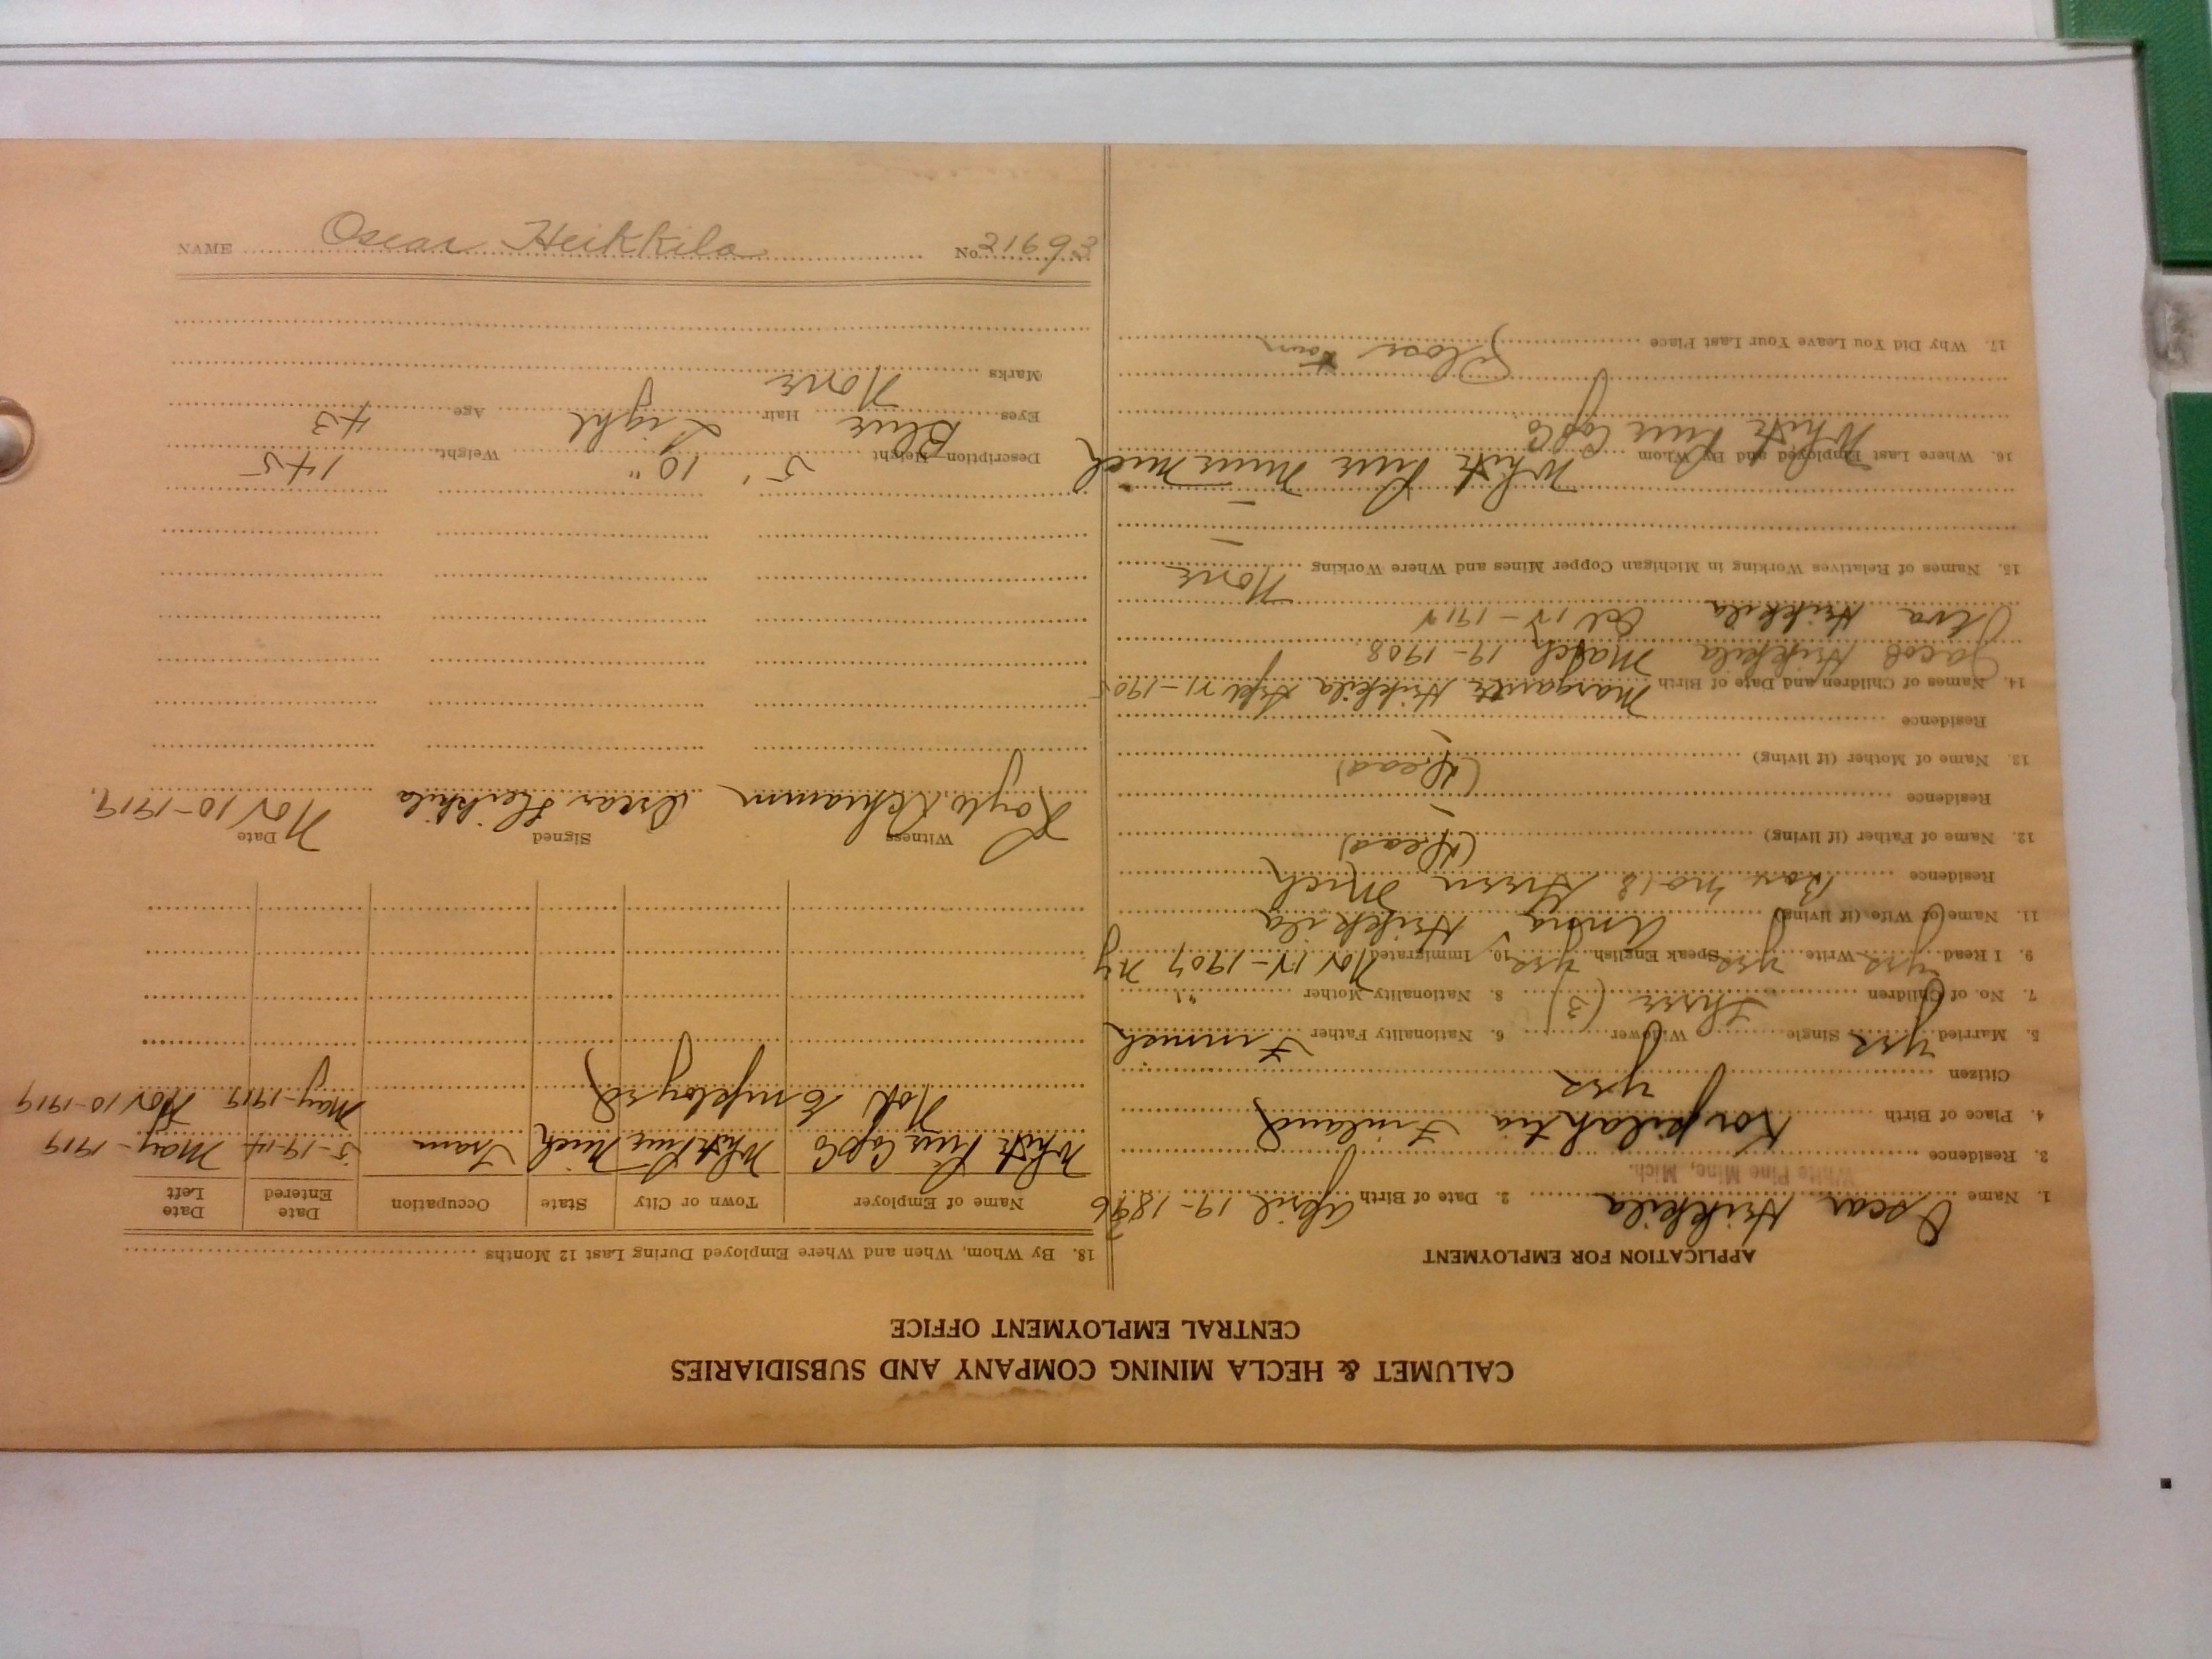 CALUMET & HECLA MINING COMPANY AND SUBSIDIARIES
CENTRAL EMPLOYMENT OFFICE
APPLICATION FOR EMPLOYMENT
1. Name Oscar Heikkila 2. Date of Birth April 19-1876
White Pine Mine, Mich.
3. Residence
4. Place of Birth Finland
Citizen yes
5. Married yes Single Widower 6. Nationality Father Finnish
7. No. of Children Three (3) 8. Nationality Mother "
9. I Read yes Write yes Speak English yes 10. Immigrated Nov NY
11. Name of Wife (if living) Anna Heikkila
Residence Box no 18 Mich
12. Name of Father (if living) (Dead)
Residence —
13. Name of Mother (if living) (Dead)
Residence —
14. Names of Children and Date of Birth Margaret Heikkila
Jacob Heikkila March 19-1908
Heikkila Oct
15. Names of Relatives Working in Michigan Copper Mines and Where Working None
—
—
16. Where Last Employed and By Whom White Pine Mine Mich
White Pine Cop Co
17. Why Did You Leave Your Last Place Close Down
18. By Whom, When and Where Employed During Last 12 Months
Name of Employer Town or City State Occupation Date Entered Date Left
White Pine Cop Co White Pine Mich Tram 5-1914 May-1919
Not Employed May-1919 Nov 10-1919
Witness Signed Date
Oscar Heikkila Nov 10-1919.
Description—Height 5' 10" Weight 145
Eyes Blue Hair Light Age 43
Marks None
NAME Oscar Heikkila No. 21693